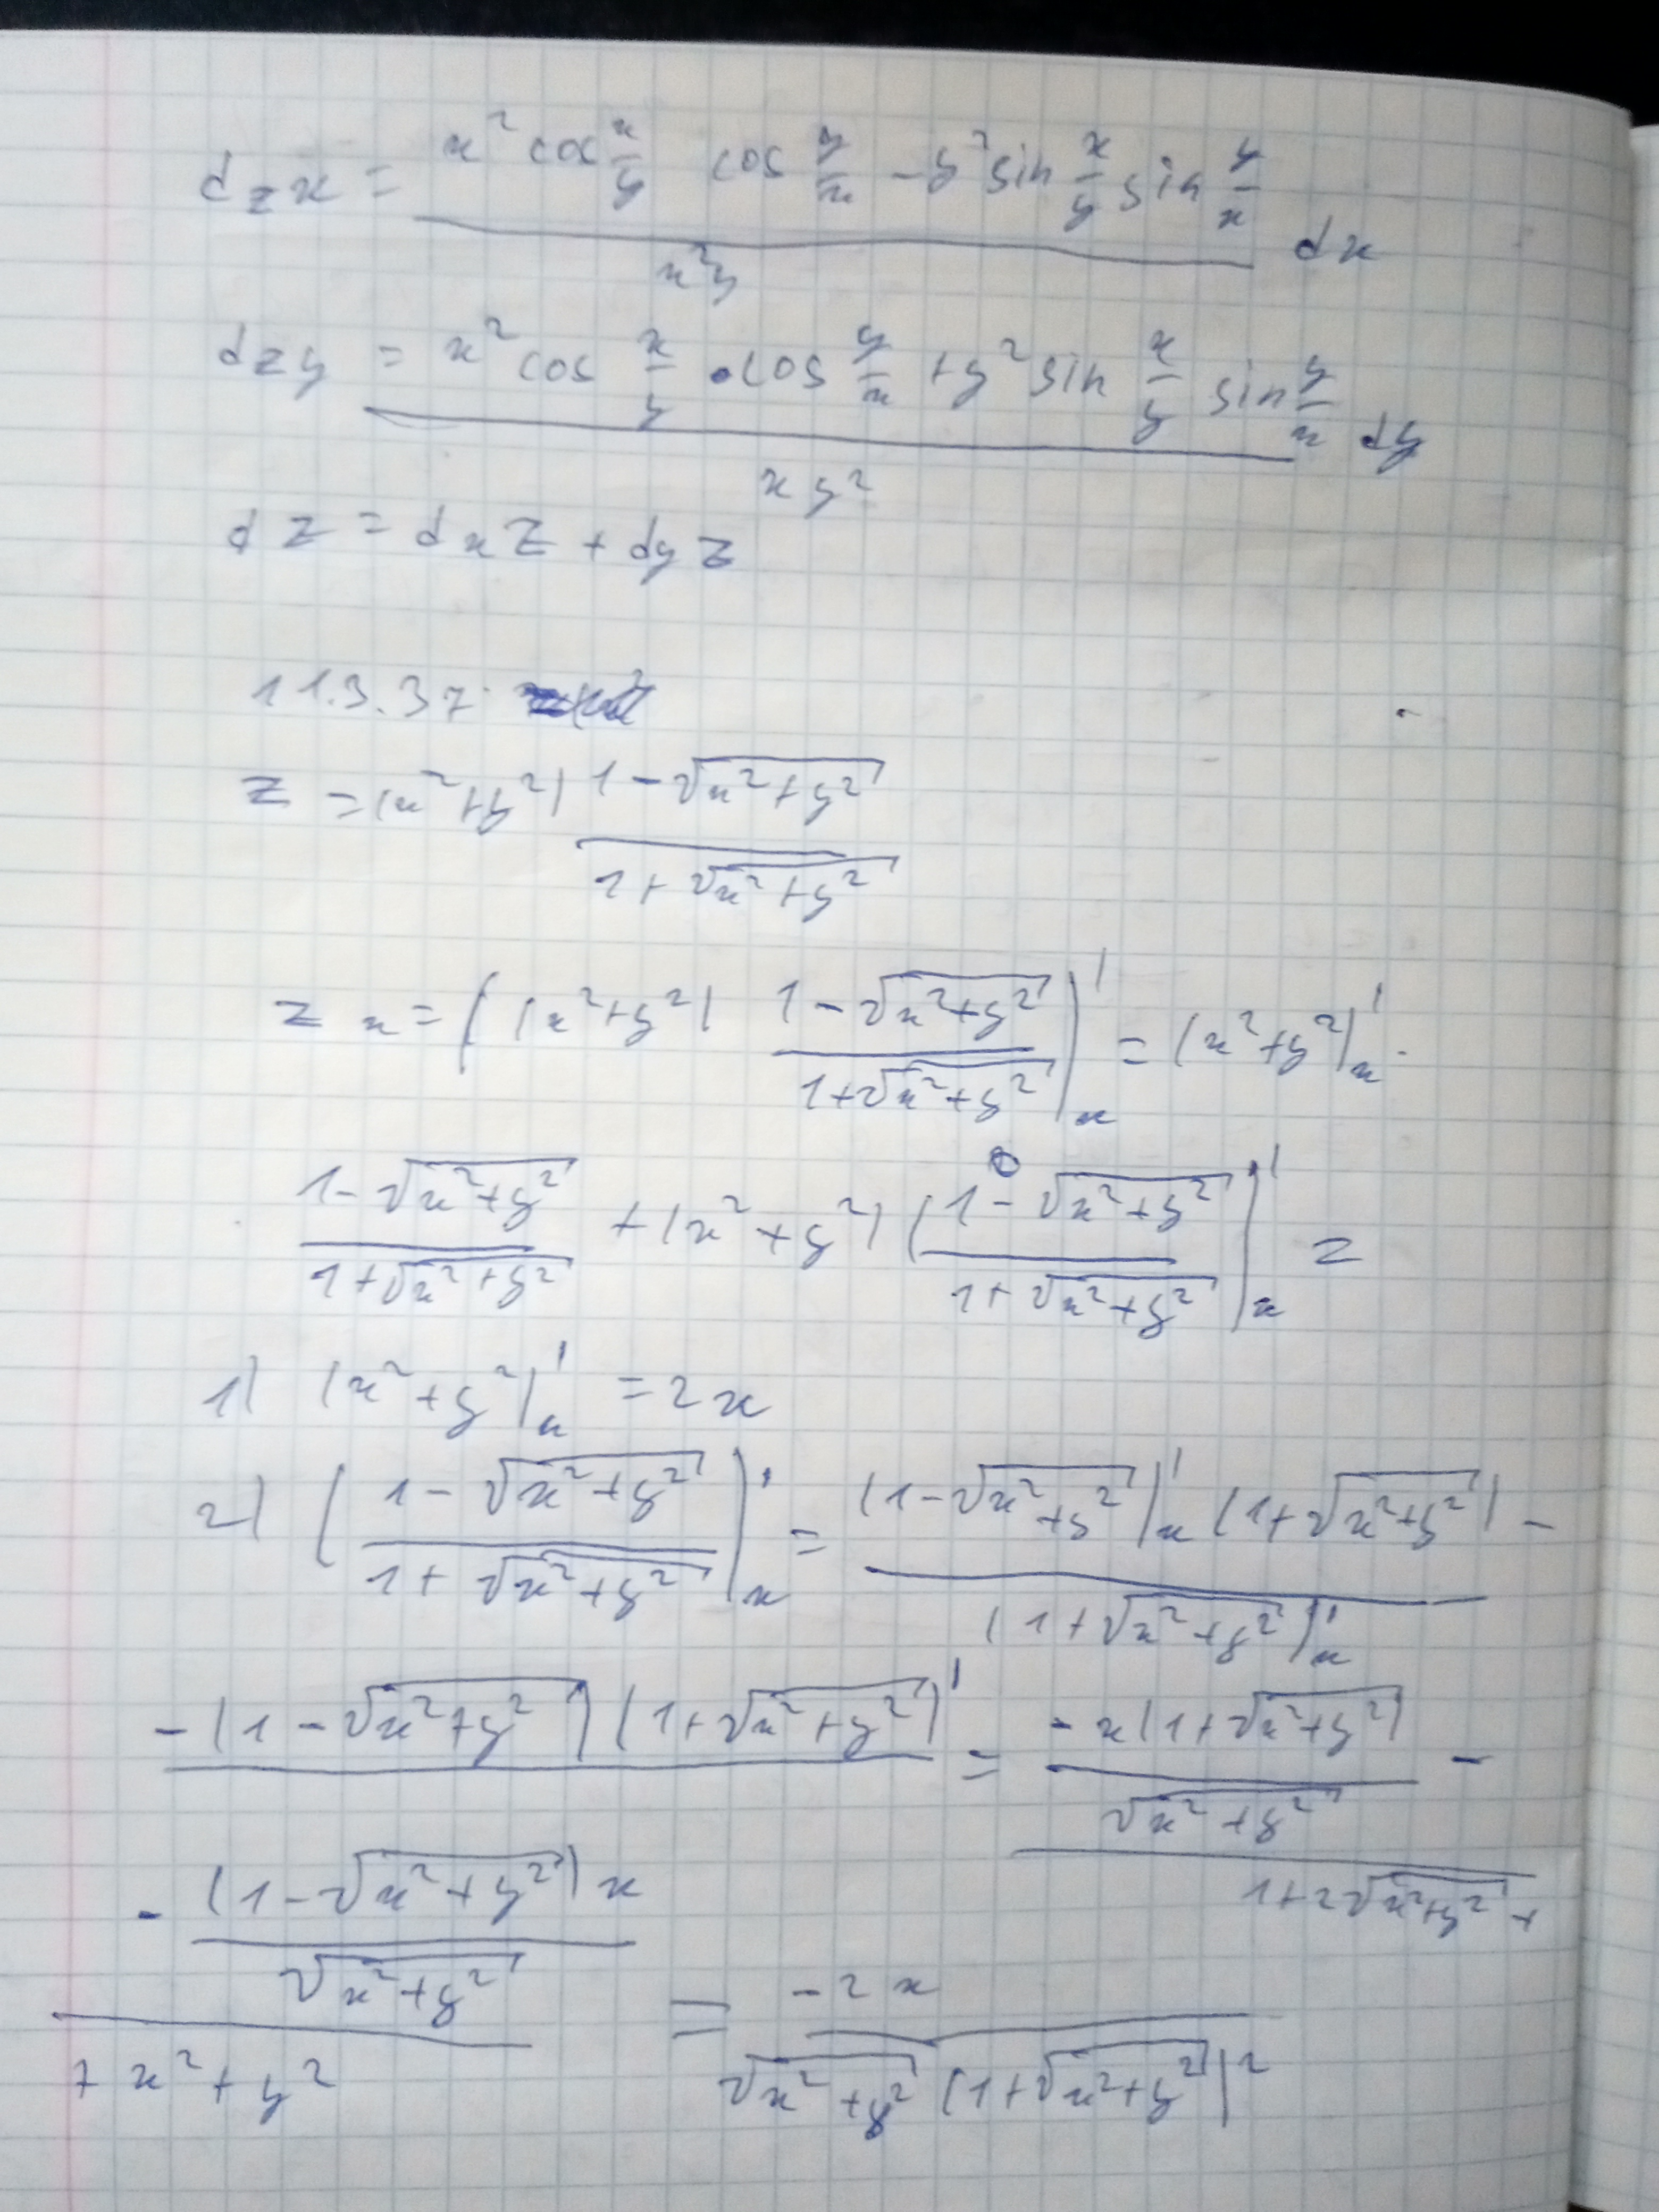 dzx = (x² cos x/y cos y/x - y² sin x/y sin y/x) / (x²y) dx
dzy = (x² cos x/y · cos y/x + y² sin x/y sin y/x) / (xy²) dy
dz = dxz + dyz
11.3.37
z = (x²+y²) (1-√(x²+y²)) / (1+√(x²+y²))
zx = ((x²+y²) (1-√(x²+y²)) / (1+√(x²+y²)))'x = (x²+y²)'x ·
(1-√(x²+y²)) / (1+√(x²+y²)) + (x²+y²) ((1-√(x²+y²)) / (1+√(x²+y²)))'x =
1) (x²+y²)'x = 2x
2) ((1-√(x²+y²)) / (1+√(x²+y²)))'x = (1-√(x²+y²))'x (1+√(x²+y²)) - / (1+√(x²+y²))'x
-(1-√(x²+y²)) (1+√(x²+y²))' / = -x(1+√(x²+y²)) / √(x²+y²) - / 1+2√(x²+y²)+
- (1-√(x²+y²))x / √(x²+y²) / +x²+y² = -2x / (√(x²+y²) (1+√(x²+y²))²)